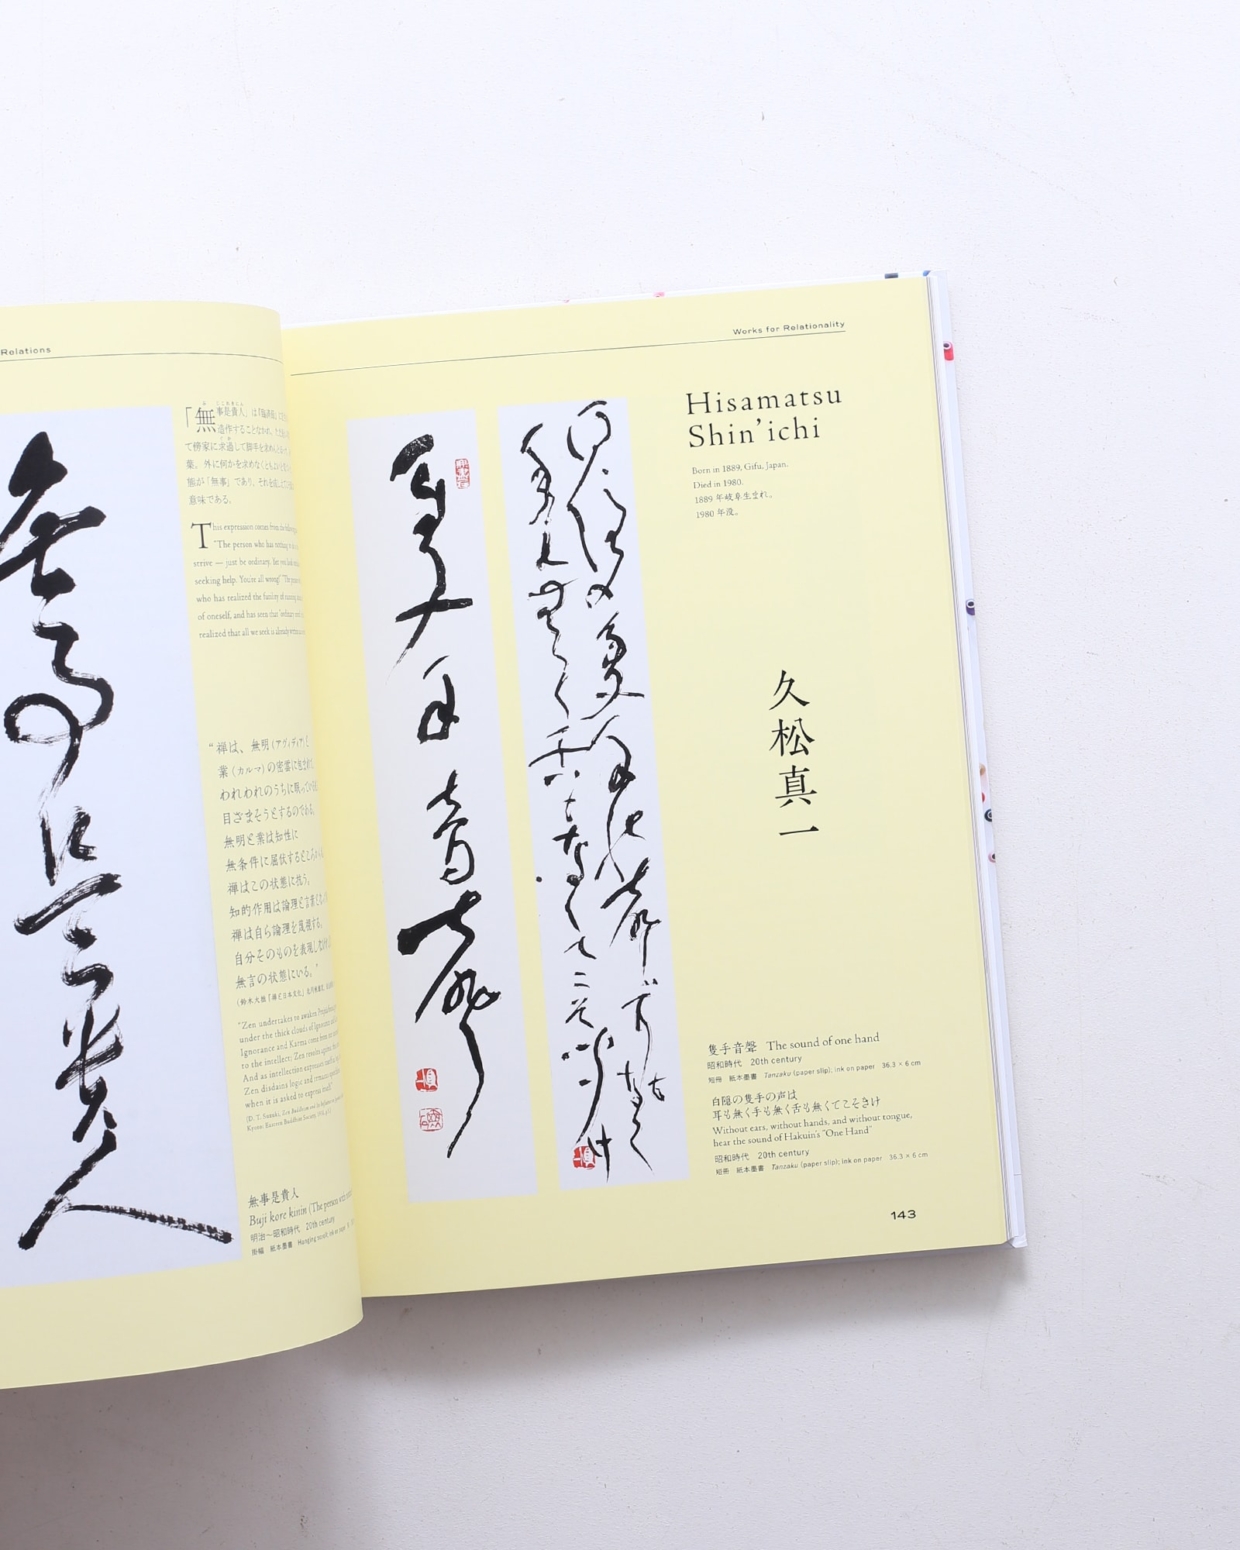 Relations
無事是貴人
「無事是貴人」は『臨済録』に
造作することなかれ、ただ
て傍家に求過して脚手を求めん
葉。外に何かを求めなく
態が「無事」であり、それを
意味である。
This expression comes from the
"The person who has nothing to
strive — just be ordinary. Yet you
seeking help. You're all wrong!" The
who has realized the futility of
of oneself, and has seen that
realized that all we seek is already within
"禅は、無明(アヴィディア)と
業(カルマ)の密雲に包まれて、
われわれのうちに眠って
目ざまそうとするのである。
無明と業は知性に
無条件に屈伏するところから
禅はこの状態に抗う。
知的作用は論理と言葉と
禅は自ら論理を蔑視する。
自分そのものを表現し
無言の状態にいる。"
(鈴木大拙『禅と日本文化』
"Zen undertakes to awaken Prajna
under the thick clouds of Ignorance
Ignorance and Karma come from
to the intellect; Zen revolts against
And as intellection expresses itself
Zen disdains logic and remains
when it is asked to express itself."
(D. T. Suzuki, Zen Buddhism and
Kyoto: Eastern Buddhist Society,
無事是貴人
Buji kore kinin (The person with
明治〜昭和時代 20th century
掛幅 紙本墨書 Hanging scroll; ink on paper
Works for Relationality
Hisamatsu
Shin'ichi
Born in 1889, Gifu, Japan.
Died in 1980.
1889 年岐阜生まれ。
1980 年没。
久松真一
隻手音聲
白隠の隻手の声は
耳も無く手も無く舌も無くてこそきけ
隻手音聲 The sound of one hand
昭和時代 20th century
短冊 紙本墨書 Tanzaku (paper slip); ink on paper 36.3 × 6 cm
白隠の隻手の声は
耳も無く手も無く舌も無くてこそきけ
Without ears, without hands, and without tongue,
hear the sound of Hakuin's "One Hand"
昭和時代 20th century
短冊 紙本墨書 Tanzaku (paper slip); ink on paper 36.3 × 6 cm
143